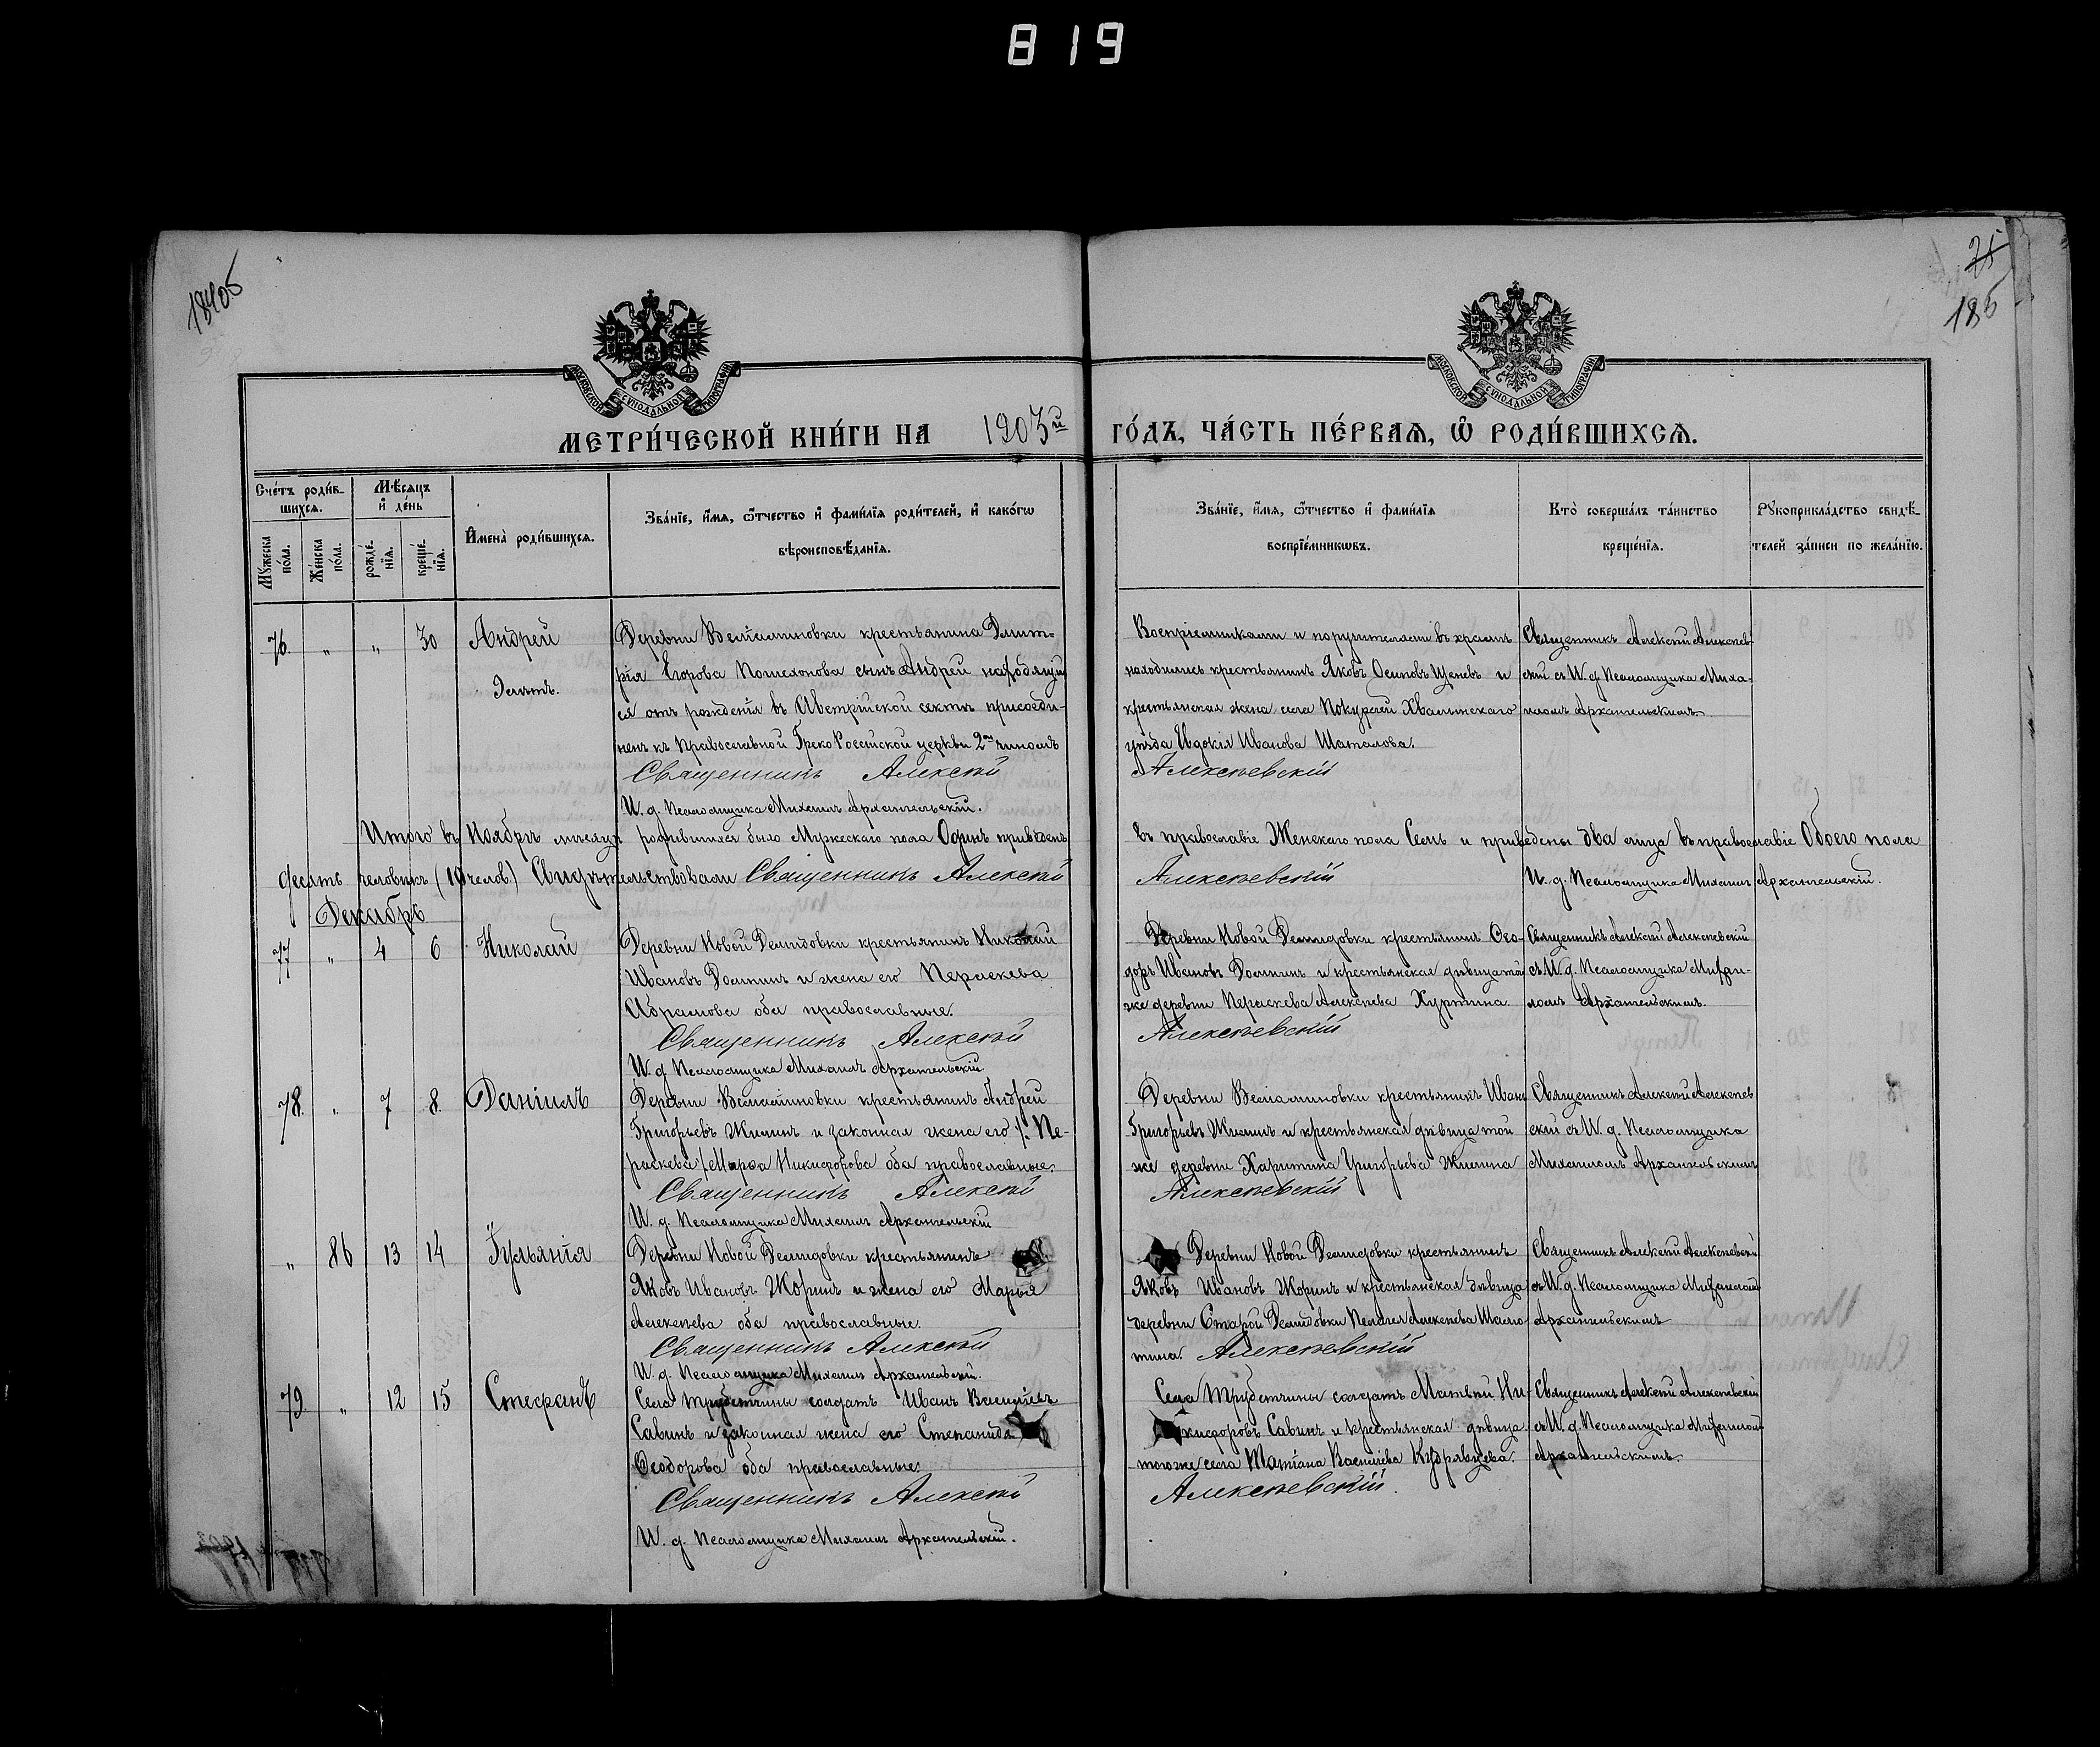 819
184об
25
185
МОСКОВСКОЙ СѴНОДАЛЬНОЙ ТИПОГРАФІИ
МОСКОВСКОЙ СѴНОДАЛЬНОЙ ТИПОГРАФІИ
МЕТРИ́ЧЕСКОЙ КНИ́ГИ НА 1903й ГО́ДЪ, ЧА́СТЬ ПЕ́РВАѦ, Ѡ҆ РОДИ́ВШИХСѦ.
Сче́тъ роди́в-
шихсѧ.
Мѣ́сѧцъ
и҆ де́нь
Мꙋ́жеска
по́ла.
Же́нска
по́ла.
рожде́-
нїѧ.
креще́-
нїѧ.
И҆мена̀ роди́вшихсѧ.
Зва́нїе, и҆́мѧ, ѻ҆́тчество и҆ фами́лїѧ роди́телей, и҆ како́гѡ
вѣроисповѣ́данїѧ.
Зва́нїе, и҆́мѧ, ѻ҆́тчество и҆ фами́лїѧ
воспрїе́мникѡвъ.
Кто̀ соверша́лъ та́инство
креще́нїѧ.
Рꙋкоприкла́дство свидѣ́-
телей за́писи по жела́нїю.
76. " " 30 Андрей
Деревни Веліаминовки крестьянина Димит-
рія Егорова Пошехонова сынъ Андрей находящій
ся отъ рожденія въ Австрійской сектѣ присоеди-
ненъ къ Православной Греко Россійской церкви 2мъ чиномъ
Священникъ Алексѣй
И. д. Псаломщика Михаилъ Архангельскій.
Воспріемниками и поручителями въ храмѣ
находились крестьянинъ Яковъ Осиповъ и
крестьянская жена села Покурлей Хвалынскаго
уѣзда Евдокія Иванова Шаталова.
Алексѣевскій
Священникъ Алексѣй Алексѣев-
скій съ И. д. Псаломщика Миха-
иломъ Архангельскимъ
Итого въ Ноябрѣ мѣсяцѣ родившихся было Мужескаго пола Одинъ приведенъ въ православіе Женскаго пола Семь и приведены два лица въ православіе Обоего пола
десять человѣкъ (10 челов.) Свидѣтельствовали Священникъ Алексѣй Алексѣевскій И. д. Псаломщика Михаилъ Архангельскій.
Декабрь
77 " 4 6 Николай
Деревни Новой Демидовки крестьянинъ Николай
Ивановъ Доминъ и жена его Пераскева
Абрамова оба православные.
Священникъ Алексѣй
И. д Псаломщика Михаилъ Архангельскій.
Деревни Новой Демидовки крестьянинъ Ѳео-
доръ Ивановъ Доминъ и крестьянская дѣвица той
же деревни Пераскева Алексѣева Куртина
Алексѣевскій
Священникъ Алексѣй Алексѣевскій
съ И. д. Псаломщика Михаи-
ломъ Архангельскимъ.
78. " 7 8. Даніилъ
Деревни Веліаминовки крестьянинъ Андрей
Григорьевъ Жилинъ и законная жена его /: Пе-
раскева / Марѳа Никифорова оба православные.
Священникъ Алексѣй
И. д. Псаломщика Михаилъ Архангельскій
Деревни Веліаминовки крестьянинъ Иванъ
Григорьевъ Жилинъ и крестьянская дѣвица той
же деревни Харитина Григорьева Жилина
Алексѣевскій
Священникъ Алексѣй Алексѣев
скій съ И. д. Псаломщика
Михаиломъ Архангельскимъ
" 86 13 14 Іульянія
Деревни Новой Демидовки крестьянинъ
Яковъ Ивановъ Жоринъ и жена его Марья
Алексѣева оба православные.
Священникъ Алексѣй
И. д. Псаломщика Михаилъ Архангельскій.
Деревни Новой Демидовки крестьянинъ
Яковъ Ивановъ Жоринъ и крестьянская дѣвица
деревни Старой Демидовки Пелагея Алексѣева Шамо
тина. Алексѣевскій
Священникъ Алексѣй Алексѣевскій
съ И. д. Псаломщика Михаиломъ
Архангельскимъ
79. " 12 15 Стефанъ
Села Трубетчины солдатъ Иванъ Васильевъ
Савинъ и законная жена его Степанида
Ѳеодорова оба православные.
Священникъ Алексѣй
И. д. Псаломщика Михаилъ Архангельскій.
Села Трубетчины солдатъ Матвей Ни-
кифоровъ Савинъ и крестьянская дѣвица
тогоже села Татіана Васильева Кудрявцева.
Алексѣевскій.
Священникъ Алексѣй Алексѣевскій
съ И. д. Псаломщика Михаиломъ
Архангельскимъ.